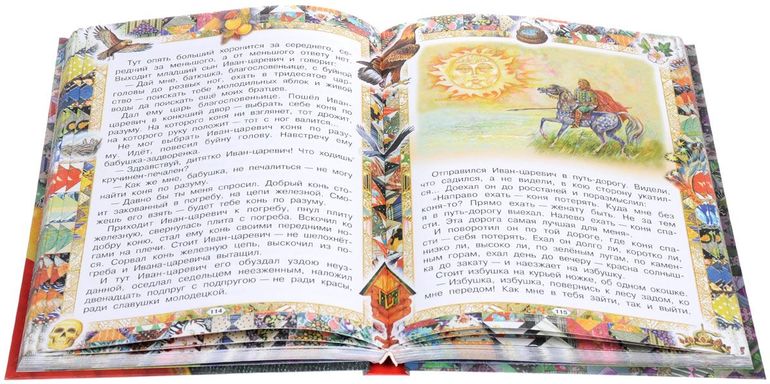 Тут опять больший хоронится за середнего, се-
редний за меньшого, а от меньшого ответу нет.
Выходит младший сын Иван-царевич и говорит:
— Дай мне, батюшка, благословеньице, с буйной
головы до резвых ног, ехать в тридесятое цар-
ство — поискать тебе молодильных яблок и живой
воды да поискать ещё моих братьев.
Дал ему царь благословеньице. Пошёл Иван-
царевич в конюший двор — выбрать себе коня по
разуму. На которого коня ни взглянет, тот дрожит,
на которого руку положит — тот с ног валится...
Не мог выбрать Иван-царевич коня по разу-
му. Идёт, повесил буйну голову. Навстречу ему
бабушка-задворенка.
— Здравствуй, дитятко Иван-царевич! Что ходишь
кручинен-печален?
— Как же мне, бабушка, не печалиться — не могу
найти коня по разуму.
— Давно бы ты меня спросил. Добрый конь сто-
ит закованный в погребу, на цепи железной. Смо-
жешь его взять — будет тебе конь по разуму.
Приходит Иван-царевич к погребу, пнул плиту
железную, свернулась плита с погреба. Вскочил ко
добру коню, стал ему конь своими передними но-
гами на плечи. Стоит Иван-царевич — не шелохнёт-
ся. Сорвал конь железную цепь, выскочил из по-
греба и Ивана-царевича вытащил.
И тут Иван-царевич его обуздал уздою неуз-
данной, оседлал седельцем неезженным, наложил
двенадцать подпруг с подпругою — не ради красы,
ради славушки молодецкой.
114
Отправился Иван-царевич в путь-дорогу. Видели,
что садился, а не видели, в кою сторону укатил-
ся... Доехал он до росстаней и поразмыслил:
«Направо ехать — коня потерять. Куда мне без
коня-то? Прямо ехать — женату быть. Не за тем
я в путь-дорогу выехал. Налево ехать — коня спа-
сти. Эта дорога самая лучшая для меня».
И поворотил он по той дороге, где коня спа-
сти — себя потерять. Ехал он долго ли, коротко ли,
низко ли, высоко ли, по зелёным лугам, по камен-
ным горам, ехал день до вечеру — красна солныш-
ка до закату — и наезжает на избушку.
Стоит избушка на курьей ножке, об одном окошке.
— Избушка, избушка, повернись к лесу задом, ко
мне передом! Как мне в тебя зайти, так и выйти.
115